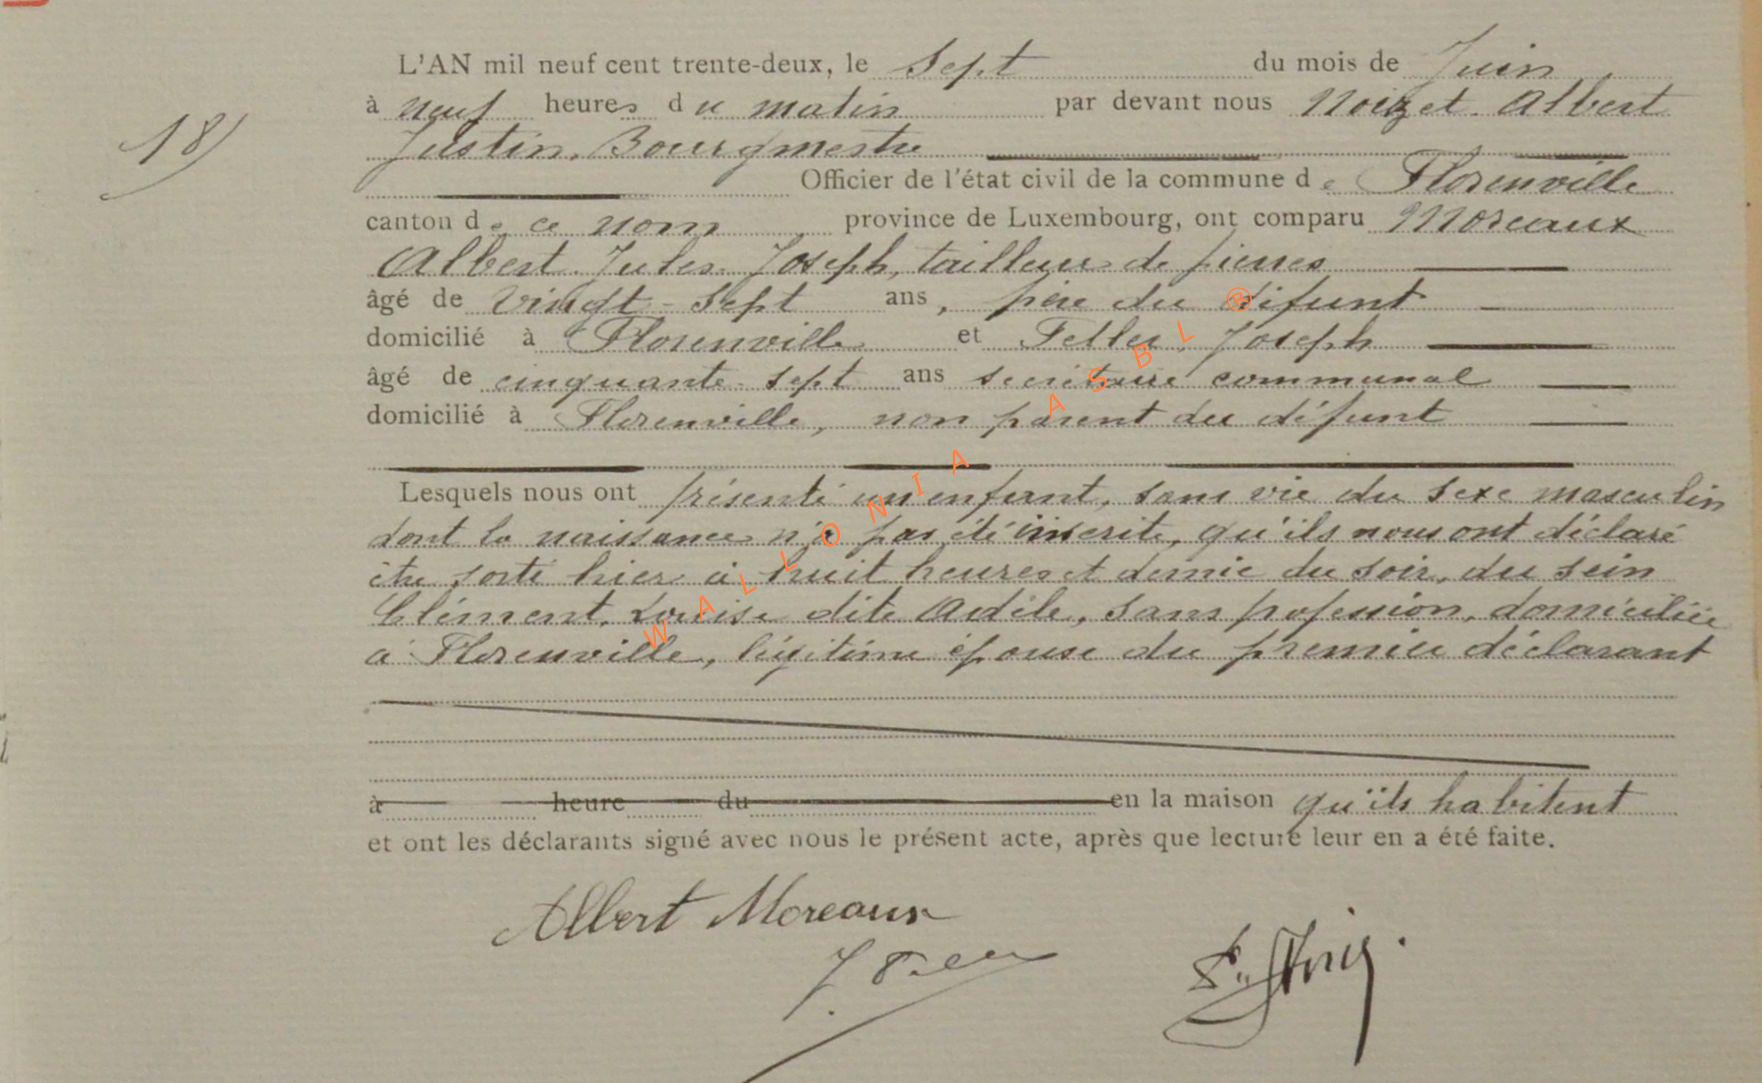 L'AN mil neuf cent trente-deux, le Sept du mois de Juin
à neuf heures du matin par devant nous Noizet Albert
18)
Justin, Bourgmestre
Officier de l'état civil de la commune de Florenville
canton de ce nom province de Luxembourg, ont comparu Moreaux
Albert Jules Joseph, tailleur de pierres
âgé de vingt-sept ans, père du défunt
domicilié à Florenville et Feller, Joseph
âgé de cinquante-sept ans secrétaire communal
domicilié à Florenville, non parent du défunt
Lesquels nous ont présenté un enfant, sans vie du sexe masculin
dont la naissance n'a pas été inscrite, qu'ils nous ont déclaré
être sorti hier à huit heures et demie du soir, du sein
Clément, Louise dite Adèle, sans profession, domiciliée
à Florenville, légitime épouse du premier déclarant
à heure du en la maison qu'ils habitent
et ont les déclarants signé avec nous le présent acte, après que lecture leur en a été faite.
Albert Moreaux
WALLONIA ASBL ®